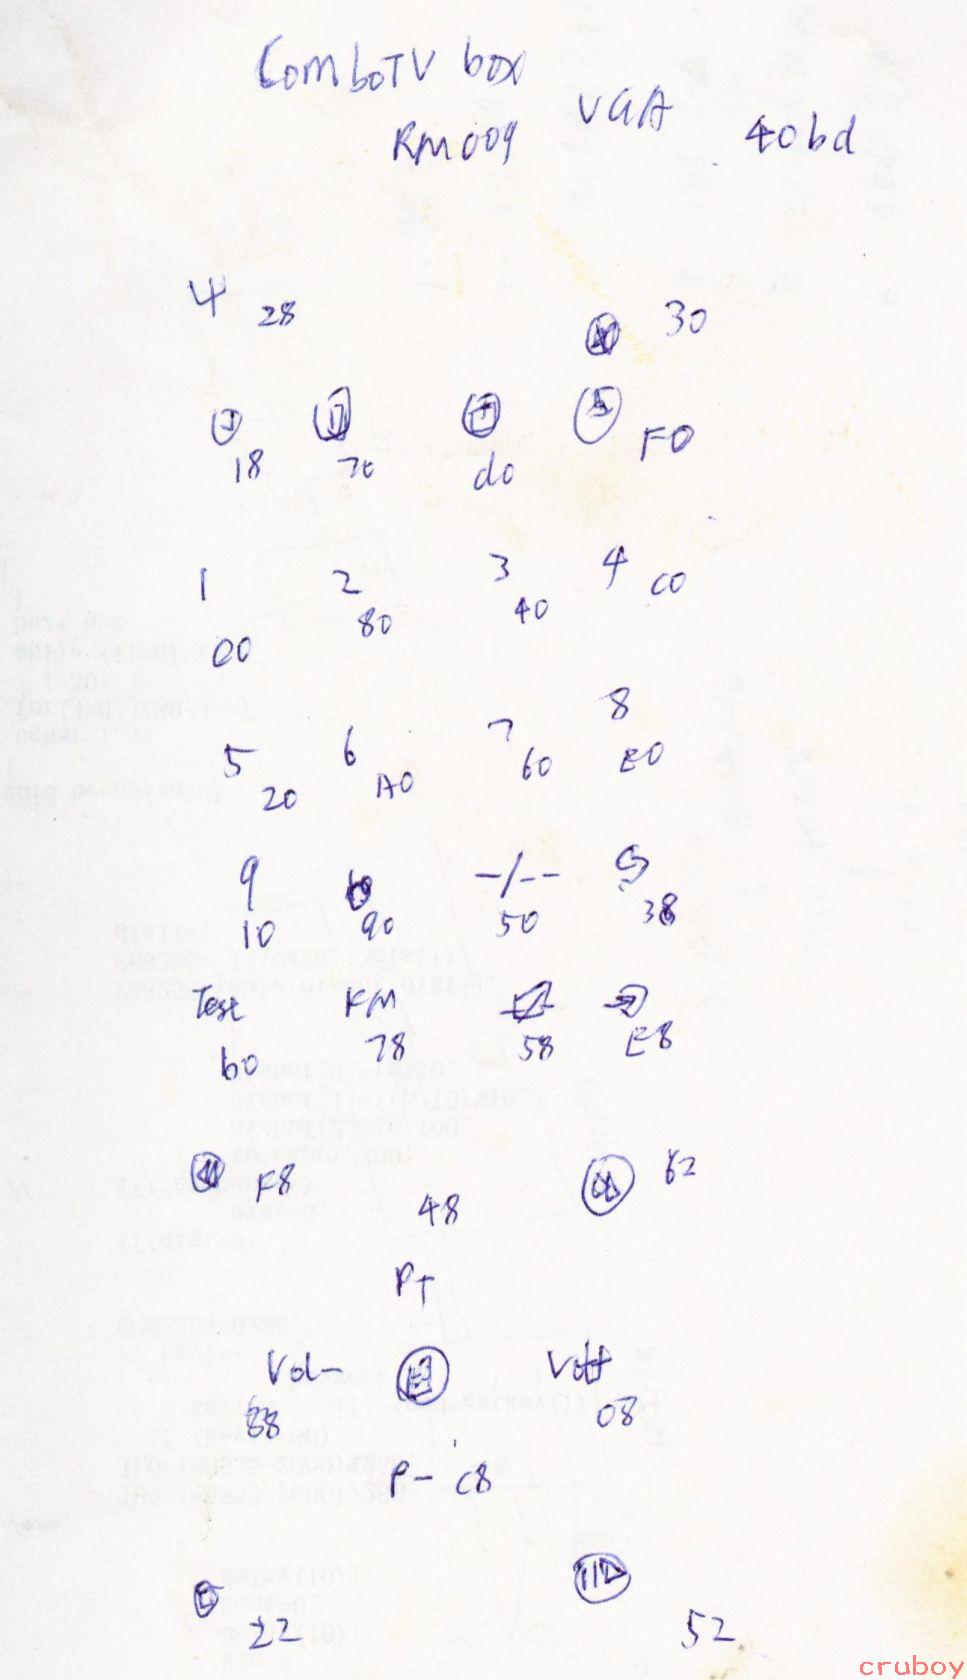 ComboTV box
VGA
RM009
40bd
28
30
18 70 d0 F0
1 2 3 4 C0
80 40
00
5 6 7 8
20 A0 60 E0
9 -/--
10 90 50 38
Test KM
b0 78 58 E8
F8 62
48
P+
Vol- Vol+
88 08
P- C8
22 52
cruboy